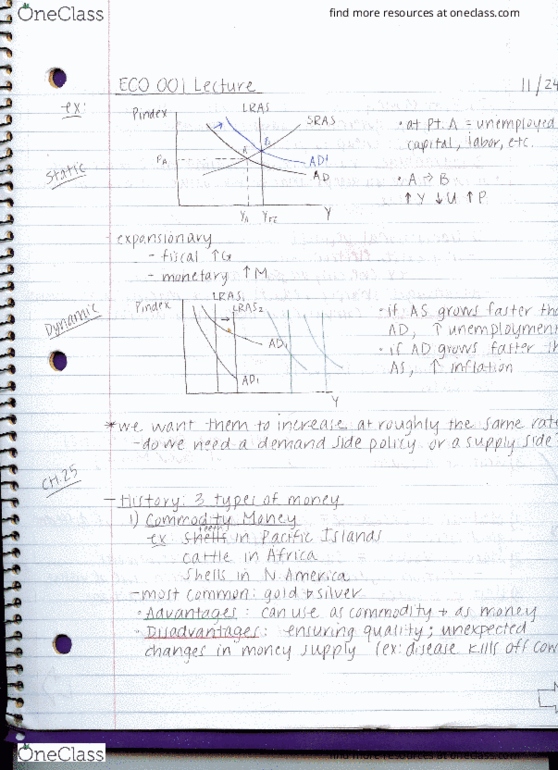 OneClass
find more resources at oneclass.com
ECO 001 Lecture 11/24
ex:
Pindex LRAS SRAS
Static
PA A B AD' AD
YA YFE Y
• at Pt. A = unemployed
capital, labor, etc.
• A → B
↑Y ↓U ↑P
expansionary
- fiscal ↑G
- monetary ↑M
Dynamic
Pindex LRAS1 LRAS2
AD, AD1 Y
• if AS grows faster tha
AD, ↑ unemployment
• if AD grows faster th
AS, ↑ inflation
*we want them to increase at roughly the same rate
- do we need a demand side policy or a supply side?
CH.25
- History: 3 types of money
1) Commodity Money
ex shells in Pacific Islands
cattle in Africa
shells in N. America
- most common: gold & silver
• Advantages: can use as commodity + as money
• Disadvantages: ensuring quality; unexpected
changes in money supply (ex: disease kills off cow
OneClass
find more resources at oneclass.com